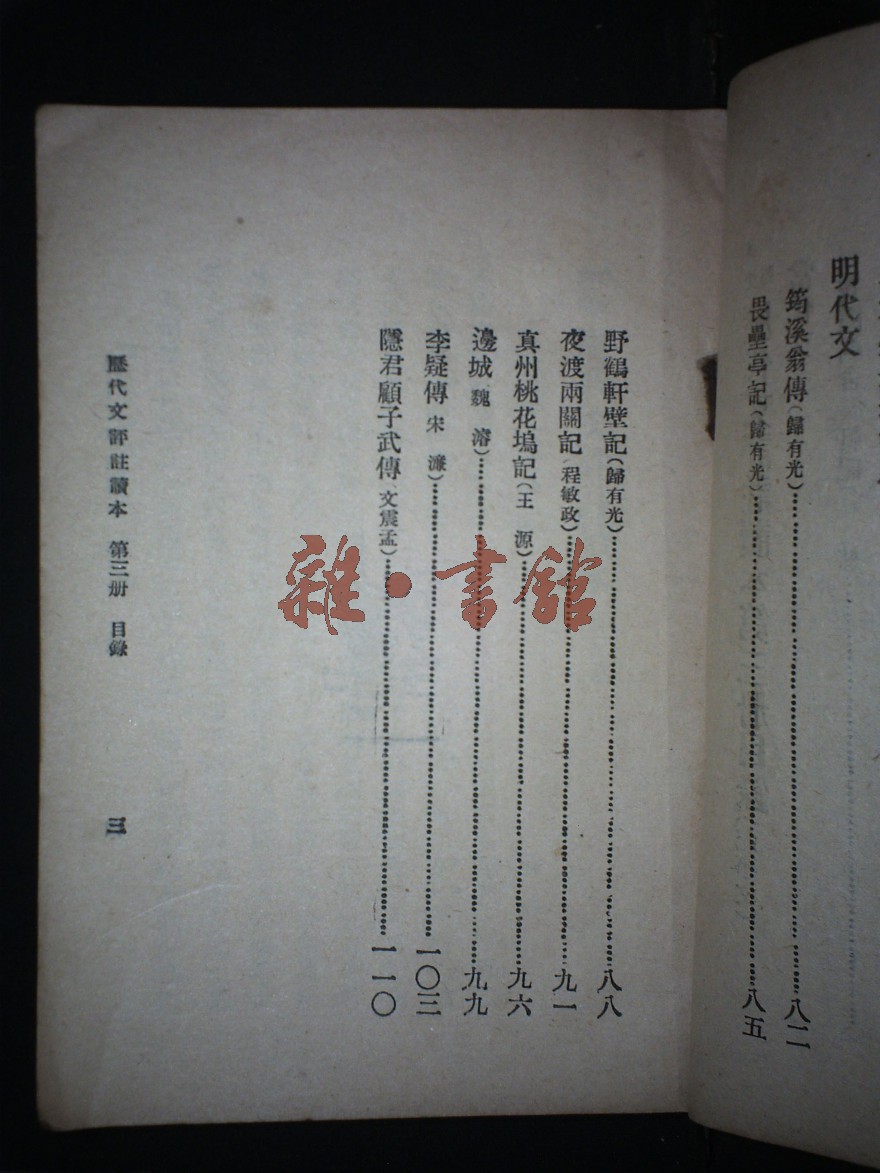 明代文
筠溪翁傳(歸有光)……八二
畏壘亭記(歸有光)……八五
野鶴軒壁記(歸有光)……八八
夜渡兩關記(程敏政)……九一
真州桃花塢記(王 源)……九六
邊城 魏 濬)……九九
李疑傳 宋 濂)……一〇三
隱君顧子武傳 文震孟)……一一〇
歷代文評註讀本 第三册 目錄
三
雜·書館